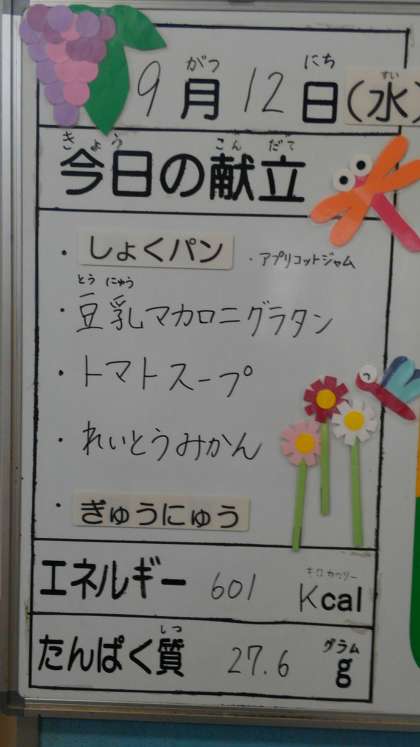 がつ にち すい
9月12日(水)
きょう こんだて
今日の献立
・しょくパン ・アプリコットジャム
とうにゅう
・豆乳マカロニグラタン
・トマトスープ
・れいとうみかん
・ぎゅうにゅう
キロカロリー
エネルギー 601 Kcal
しつ グラム
たんぱく質 27.6 g